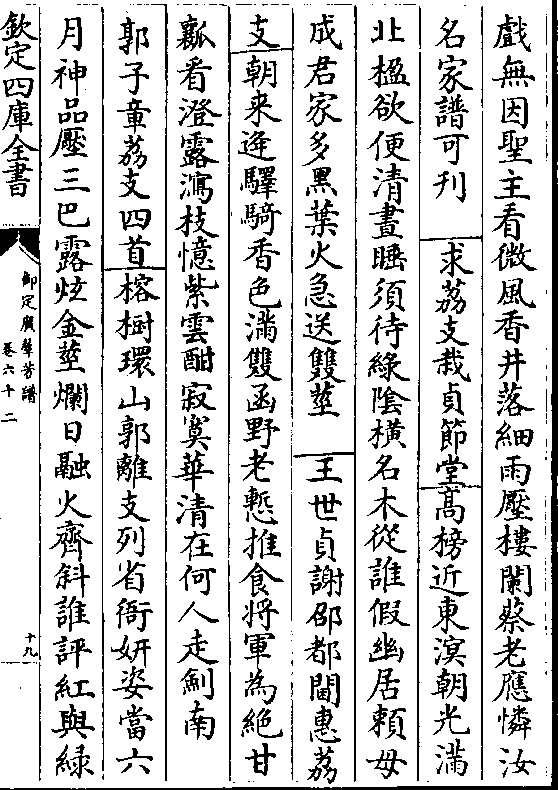 戲無因聖主看微風香井落細雨壓樓闌蔡老應憐汝
名家譜可刋　求荔支栽貞節堂高榜近東溟朝光滿
北楹欲便清晝睡須待綠陰横名木從誰假幽居賴毋
成君家多黑葉火急送雙莖　王世貞謝邵都閫惠荔
支朝来逄驛騎香色滿雙函野老慙推食将軍為絶甘
瓤看澄露瀉枝憶紫雲酣寂寞華清在何人走劍南
郭子章荔支四首榕樹環山郭離支列省衙妍姿當六
月神品壓三巴露炫金莖爛日融火齊斜誰評紅與綠
欽定四庫全書
御定廣羣芳譜
卷六十二
十九